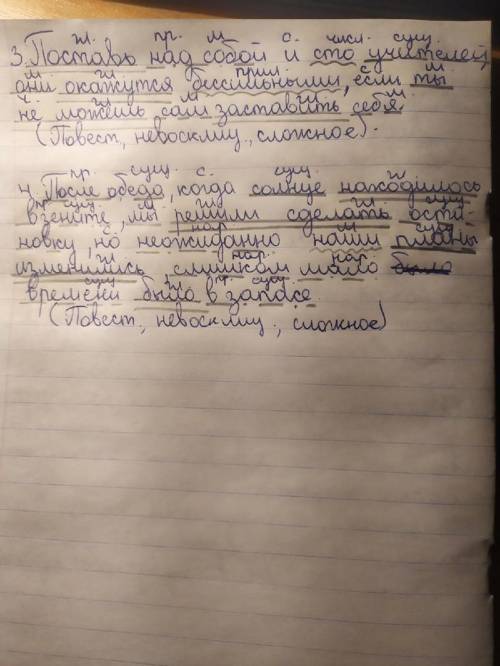 гл. пр. м с. числ. сущ.
3. Поставь над собой и сто учителей,
м гл прил. с. м
они окажутся бессильными, если ты
ч. гл м гл м
не можешь сам заставить себя
(Повест., невосклиц., сложное).
пр. сущ. с. сущ. гл
4. После обеда, когда солнце находилось
пр. сущ. м гл гл сущ
в зените, мы решили сделать оста-
с. нар м сущ
новку, но неожиданно наши планы
гл нар. нар
изменились, слишком мало было
сущ гл п сущ.
времени было в запасе.
(Повест., невосклиц., сложное)